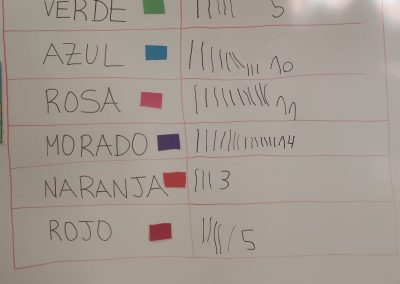 VERDE 5
AZUL 10
ROSA 11
MORADO 14
NARANJA 3
ROJO 5